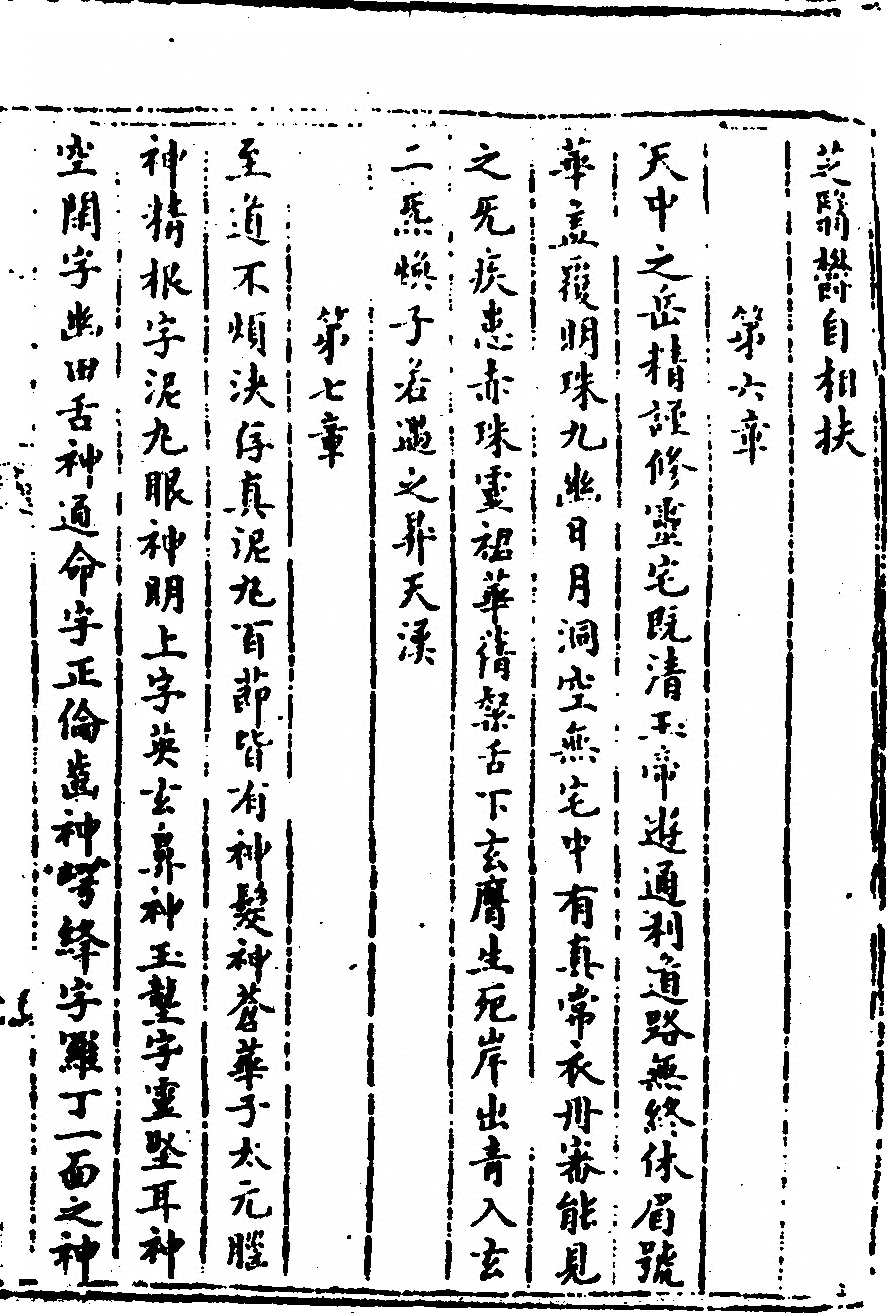 芝翳鬱自相扶
第六章
天中之岳精謹修靈宅既清玉帝遊通利道路無終休眉號
華蓋覆明珠九幽日月洞空無宅中有真常衣丹審能見
之旡疾患赤珠靈裙華蒨粲舌下玄膺生死岸出青入玄
二炁煥子若遇之昇天漢
第七章
至道不煩決存真泥丸百節皆有神髮神蒼華子太元腦
神精根字泥丸眼神明上字英玄鼻神玉壟字靈堅耳神
空閑字幽田舌神通命字正倫齒神崿鋒字羅丁一面之神